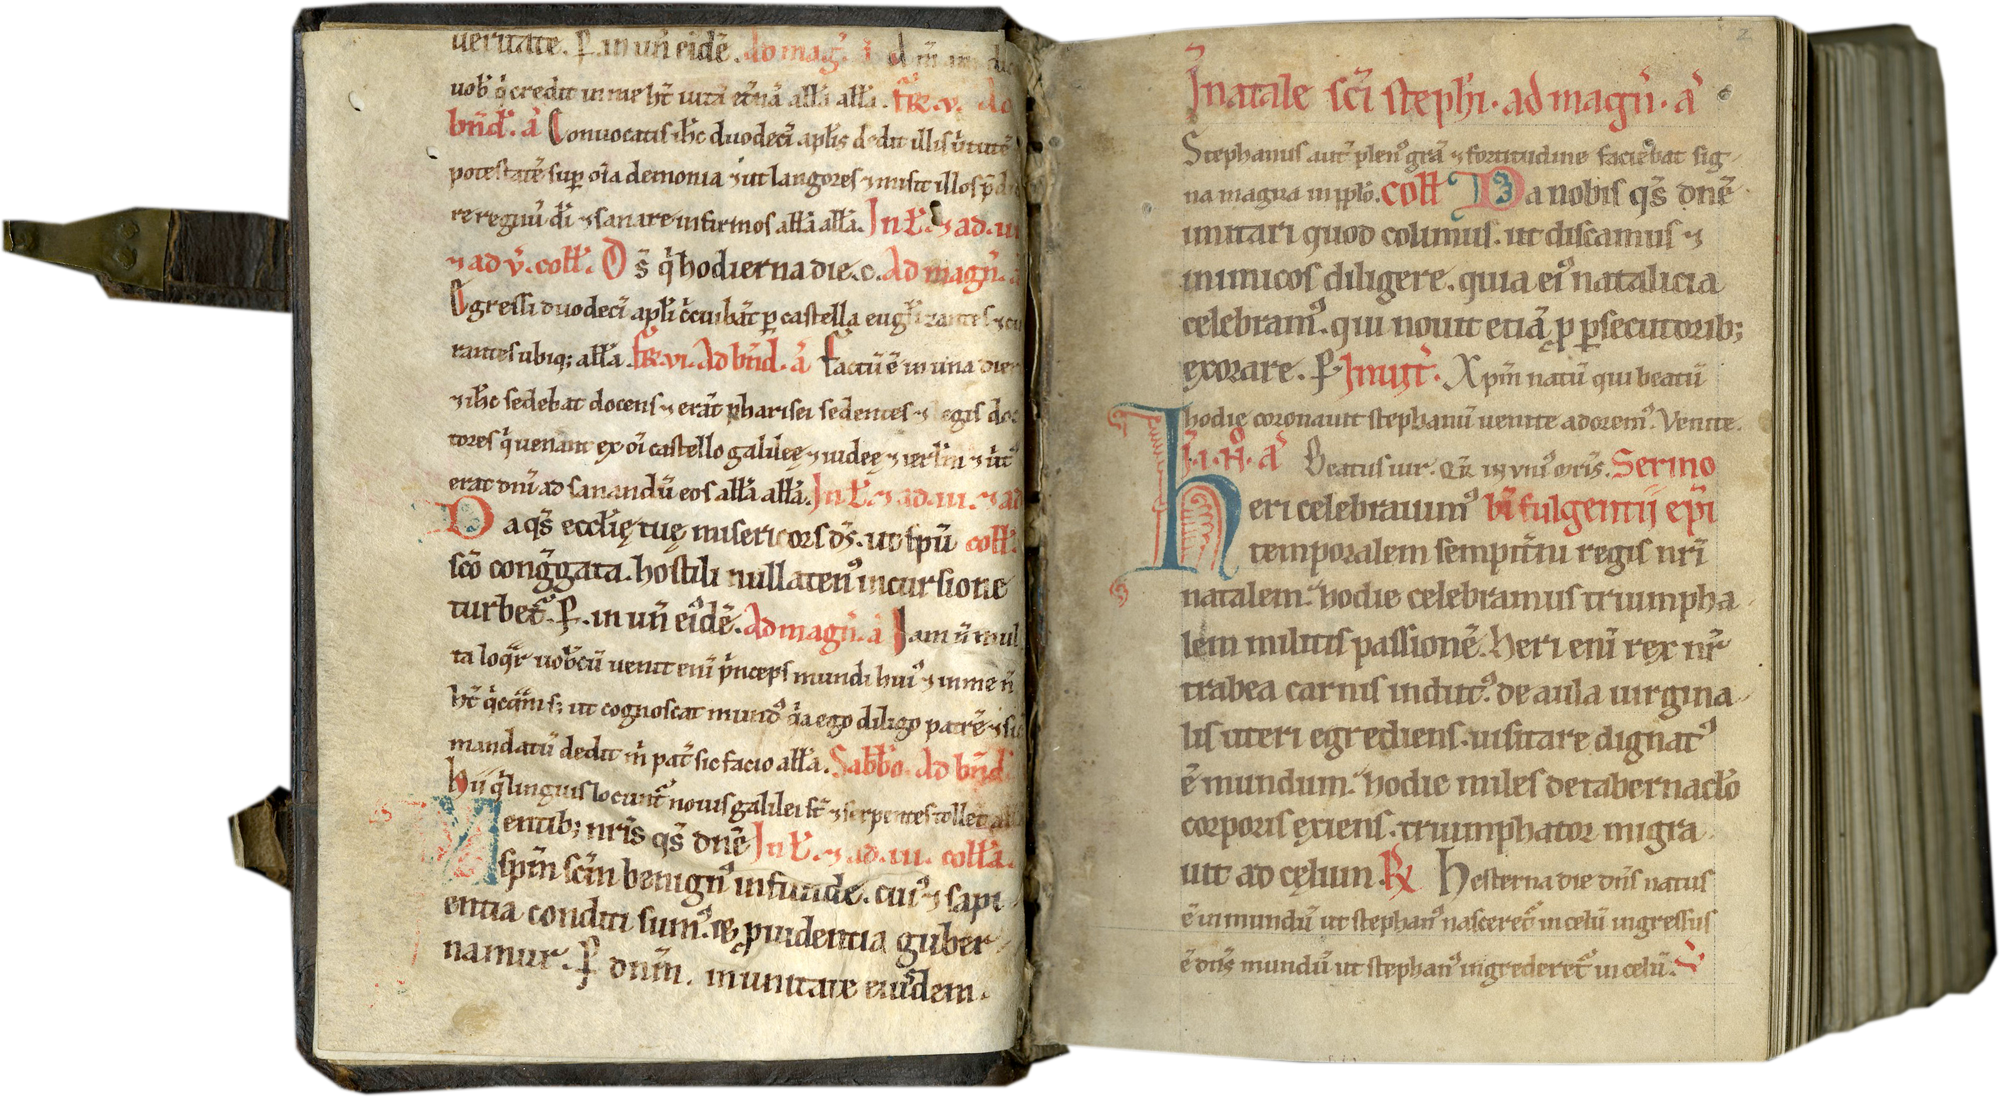 ueritate. ꝑ. in un̄ eid̄ē. Ad maḡ.
uob᷒ q̄ credit in me h̄t uitā et̄nā all̄a all̄a. fr̄. v. Ad
bn̄d̄. ā Conuocatis ih̄c duodecī apl̄is dedit illis ūtutē
potestatē suꝑ oīa demonia ⁊ ut langores ⁊ misit illos p̄di
re regnū dī ⁊ sanare infirmos all̄a all̄a. In t̄. ⁊ ad. ui
⁊ ad v̄. coll̄. D s̄ q̄ hodierna die. c. Ad magn̄. a
Egressi duodecī apl̄i c̄cuibāt ꝑ castella eugl̄izantes ⁊ cu
rantes ubiq; all̄a. fr̄. vi. Ad bn̄d. ā factū ē in una dier
⁊ ih̄c sedebat docens ⁊ erāt pharisei sedentes ⁊ legis doc
tores q̄ uenant ex oī castello galileę ⁊ iudeę ⁊ ierl̄m ⁊ ūt᷒
erat dnī ad sanandū eos all̄a all̄a. In t̄. ⁊ ad. iii. ⁊ ad
Da qs̄ eccl̄ię tuę misericors ds̄. ut spū coll̄.
sc̄o conḡgata. hostili nullaten᷒ incursione
turbet᷒. ꝑ. in un̄ eid̄ē. Ad magn̄. ā Iam n̄ mul
ta loq̄r uob̄cū uenit enī p̄nceps mundi hui᷒ ⁊ in me n̄
h̄t q̄cq̄m̄; ut cognoscat mund᷒ q̄a ego diligo patrē ⁊ sic
mandatū dedit m̄ pat̄ sic facio all̄a. Sabb̄o. Ad bn̄d
hii q̄ linguis locunt᷒ nouis galilei st̄ ⁊ serpentes tollet all
Mentib; nr̄is qs̄ dn̄ē In t̄. ⁊ ad. iii. coll̄a.
spm̄ sc̄m benign᷒ infunde. cui᷒ ⁊ sapi
entia conditi sum᷒. ⁊ ꝓuidentia guber
namur. ꝑ dn̄m. in unitate eiusdem.
2
In natale sc̄i steph̄i. ad magn̄. ā
Stephanus aut̄ plen᷒ grā ⁊ fortitudine faciebat sig
na magna in pplo. coll̄ Da nobis qs̄ dn̄ē
imitari quod colimus. ut discamus ⁊
inimicos diligere. quia ei᷒ natalicia
celebram᷒. qui nouit etiā ꝓ ꝑsecutorib;
exorare. ꝑ. Inuit̄. Xpm̄ natū qui beatū
hodie coronauit stephanū uenite adorem᷒. Venite.
In. i. N̄. ā Beatus uir. Qr̄ in vni᷒ oris. Sermo
heri celebrauim᷒ bī fulgentij ep̄i
temporalem sempit̄ni regis nr̄i
natalem. hodie celebramus triumpha
lem militis passionē. heri enī rex nr̄
trabea carnis indut᷒. de aula uirgina
lis uteri egrediens. uisitare dignat᷒
ē mundum. hodie miles de tabernacl̄o
corporis exiens. triumphator migra
uit ad cęlum. R̸ Hesterna die dn̄s natus
ē in mundū ut stephan᷒ nasceret᷒ in celū ingressus
ē dn̄s mundū ut stephan᷒ ingrederet᷒ in celū.